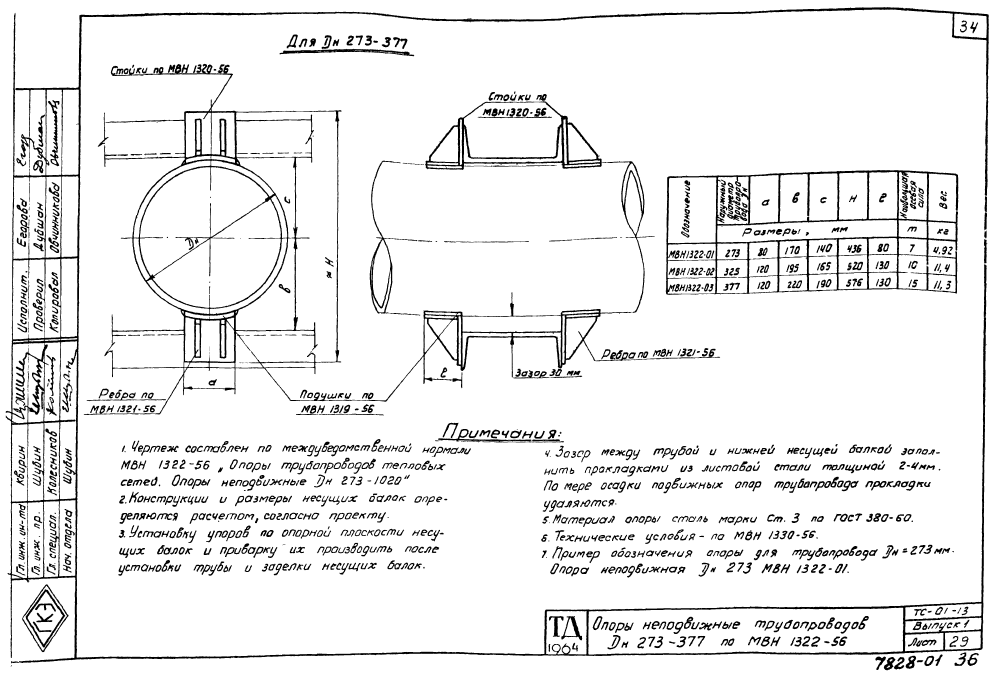 34
Для Dн 273-377
Стойки по МВН 1320-56
Стойки по
МВН 1320-56
Dн
c
в
≈ H
a
Ребра по
МВН 1321-56
Подушки по
МВН 1319-56
ℓ
Зазор 30 мм
Ребра по МВН 1321-56
Обозначение | Наружный диаметр трубопровода Dн | a | в | c | H | ℓ | Наибольшая осевая сила | Вес
Размеры, мм | т | кг
МВН1322-01 | 273 | 80 | 170 | 140 | 436 | 80 | 7 | 4,92
МВН1322-02 | 325 | 120 | 195 | 165 | 520 | 130 | 10 | 11,4
МВН1322-03 | 377 | 120 | 220 | 190 | 576 | 130 | 15 | 11,3
Примечания:
1. Чертеж составлен по междуведомственной нормали
МВН 1322-56 „Опоры трубопроводов тепловых
сетей. Опоры неподвижные Dн 273-1020"
2. Конструкции и размеры несущих балок опре-
деляются расчетом, согласно проекту.
3. Установку упоров по опорной плоскости несу-
щих балок и приварку их производить после
установки трубы и заделки несущих балок.
4. Зазор между трубой и нижней несущей балкой запол-
нить прокладками из листовой стали толщиной 2-4мм.
По мере осадки подвижных опор трубопровода прокладки
удаляются.
5. Материал опоры сталь марки Ст. 3 по ГОСТ 380-60.
6. Технические условия - по МВН 1330-56.
7. Пример обозначения опоры для трубопровода Dн = 273 мм.
Опора неподвижная Dн 273 МВН 1322-01.
Исполнит. Егорова
Проверил Дубиан
Копировал Овчинникова
Гл. инж. ин-та Квирин
Гл. инж. пр. Шубин
Гл. специал. Колесников
Нач. отдела Шубин
ТД
1964
Опоры неподвижные трубопроводов
Dн 273-377 по МВН 1322-56
ТС-01-13
Выпуск 1
Лист 29
7828-01 36